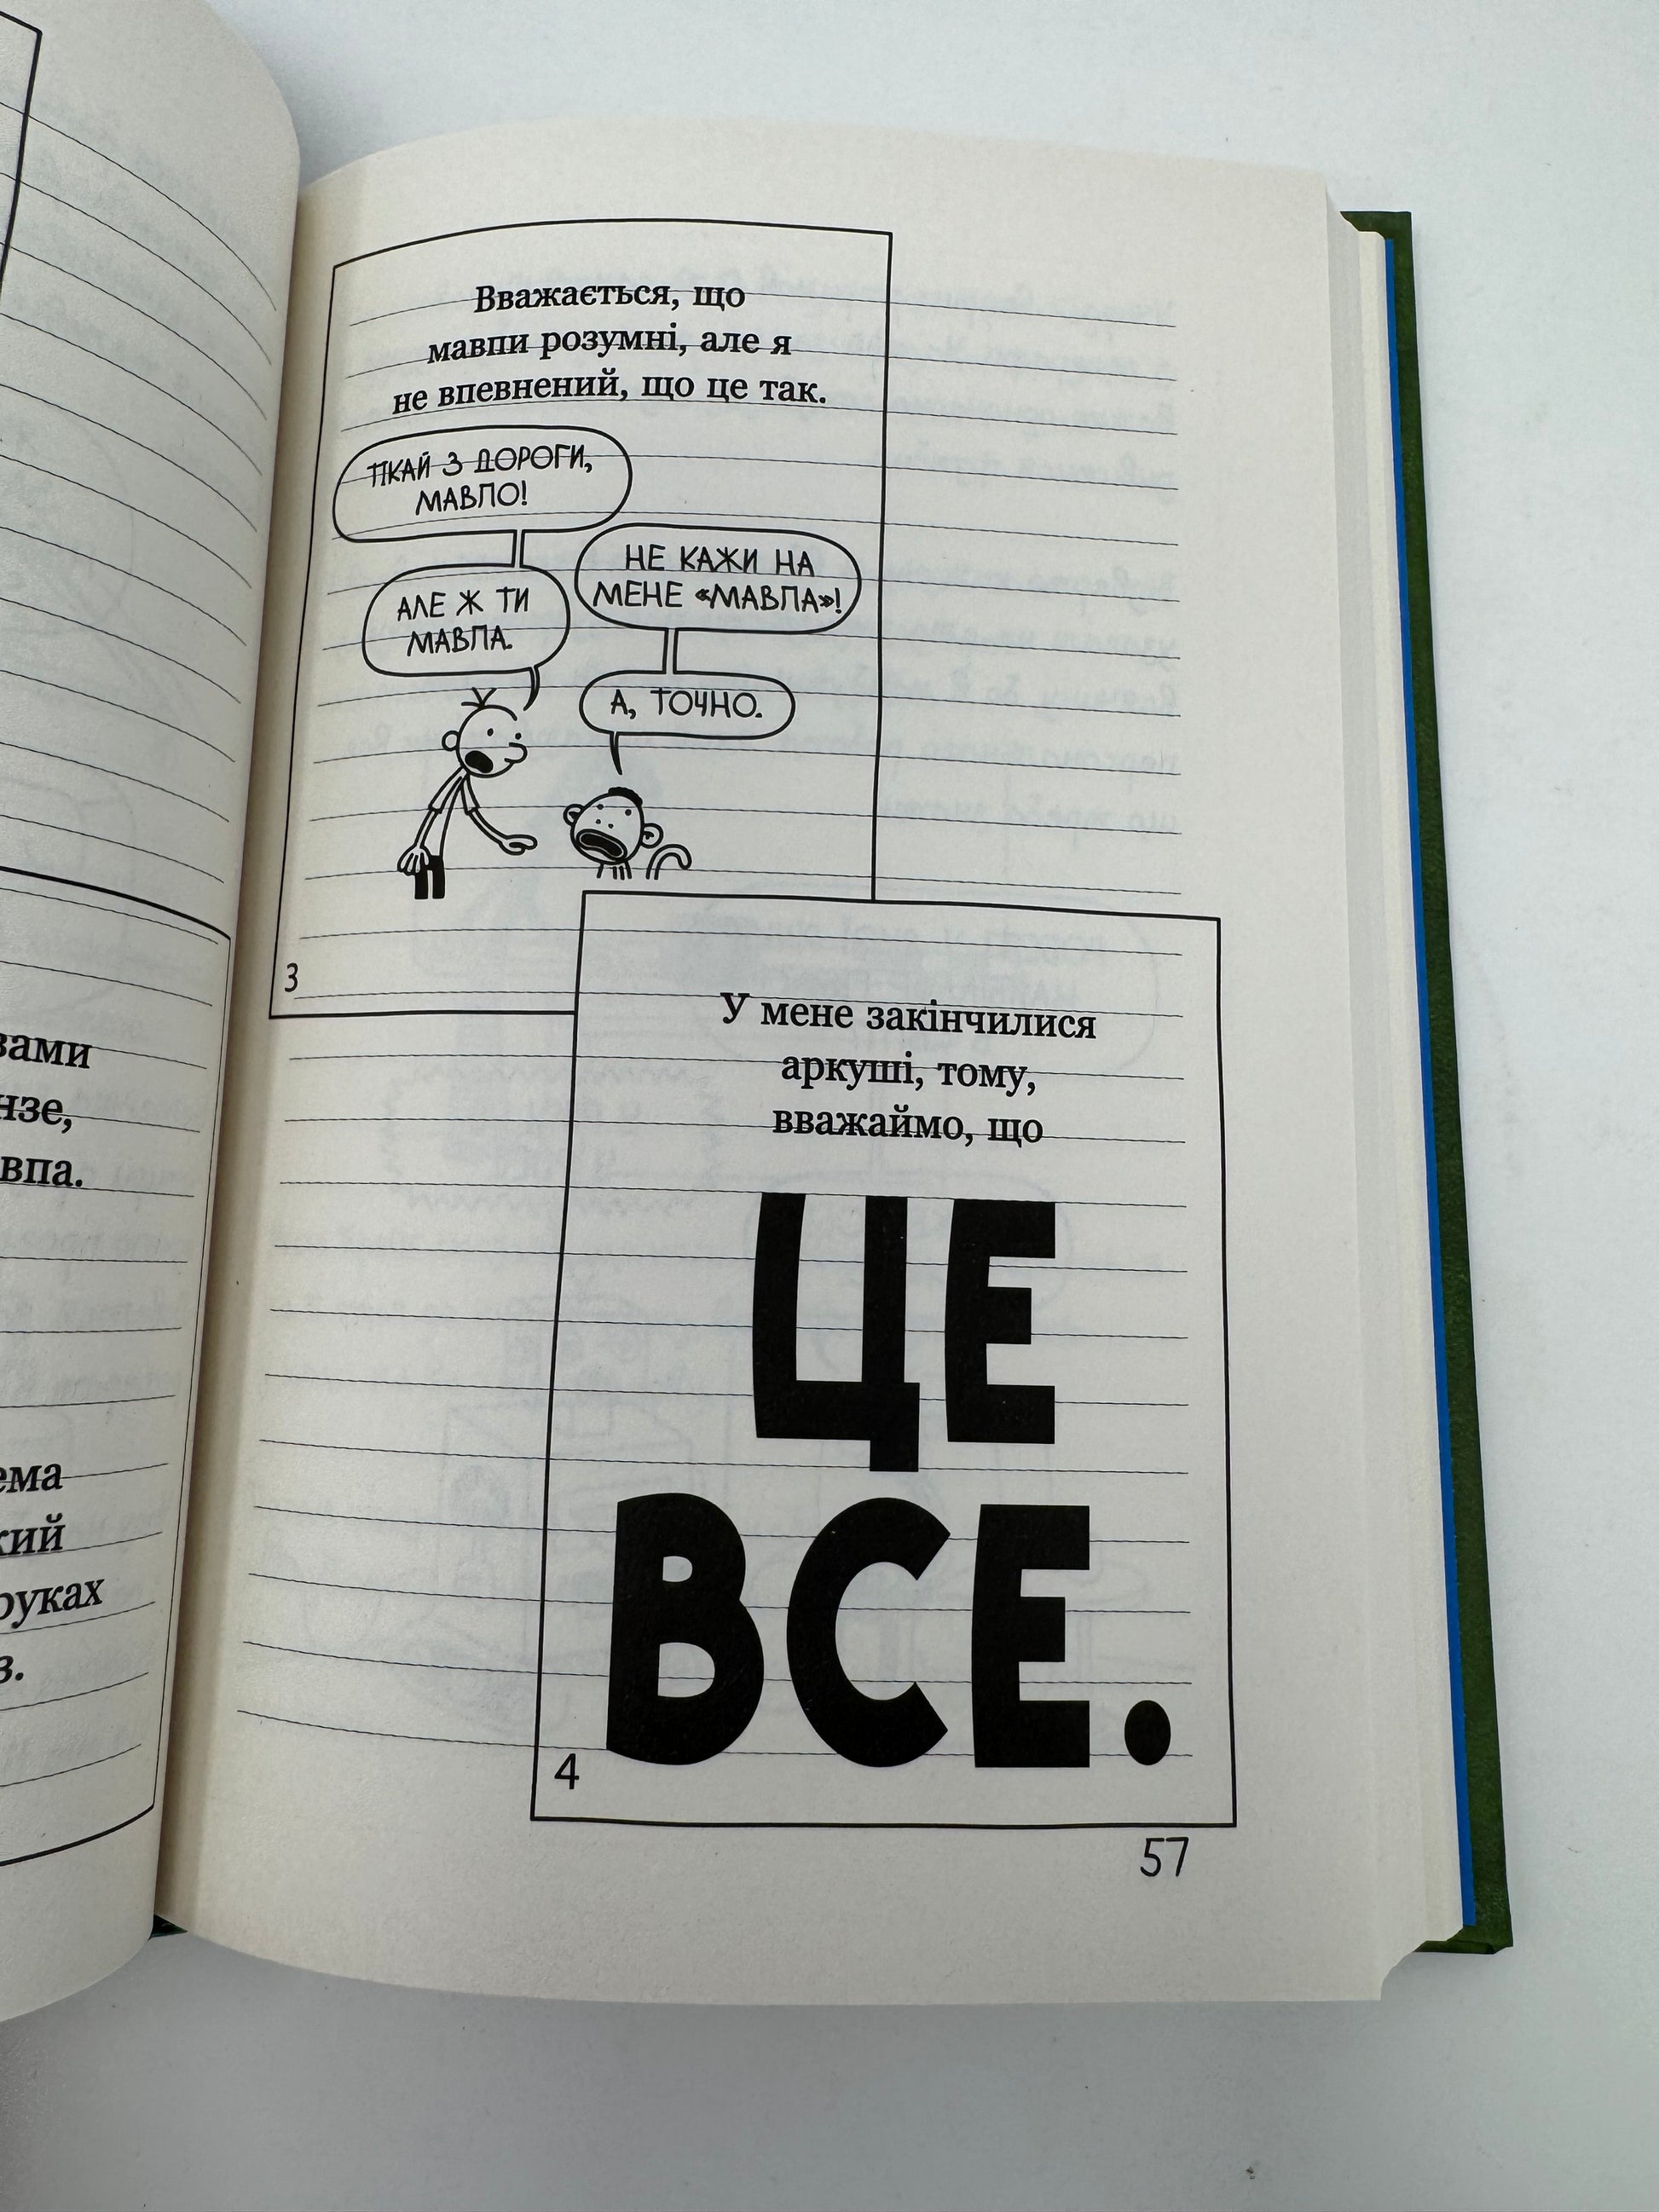 вами
нзе,
впа.
ема
кий
руках
в.
Вважається, що
мавпи розумні, але я
не впевнений, що це так.
ТІКАЙ З ДОРОГИ,
МАВПО!
НЕ КАЖИ НА
МЕНЕ «МАВПА»!
АЛЕ Ж ТИ
МАВПА.
А, ТОЧНО.
3
У мене закінчилися
аркуші, тому,
вважаймо, що
ЦЕ
ВСЕ.
4
57